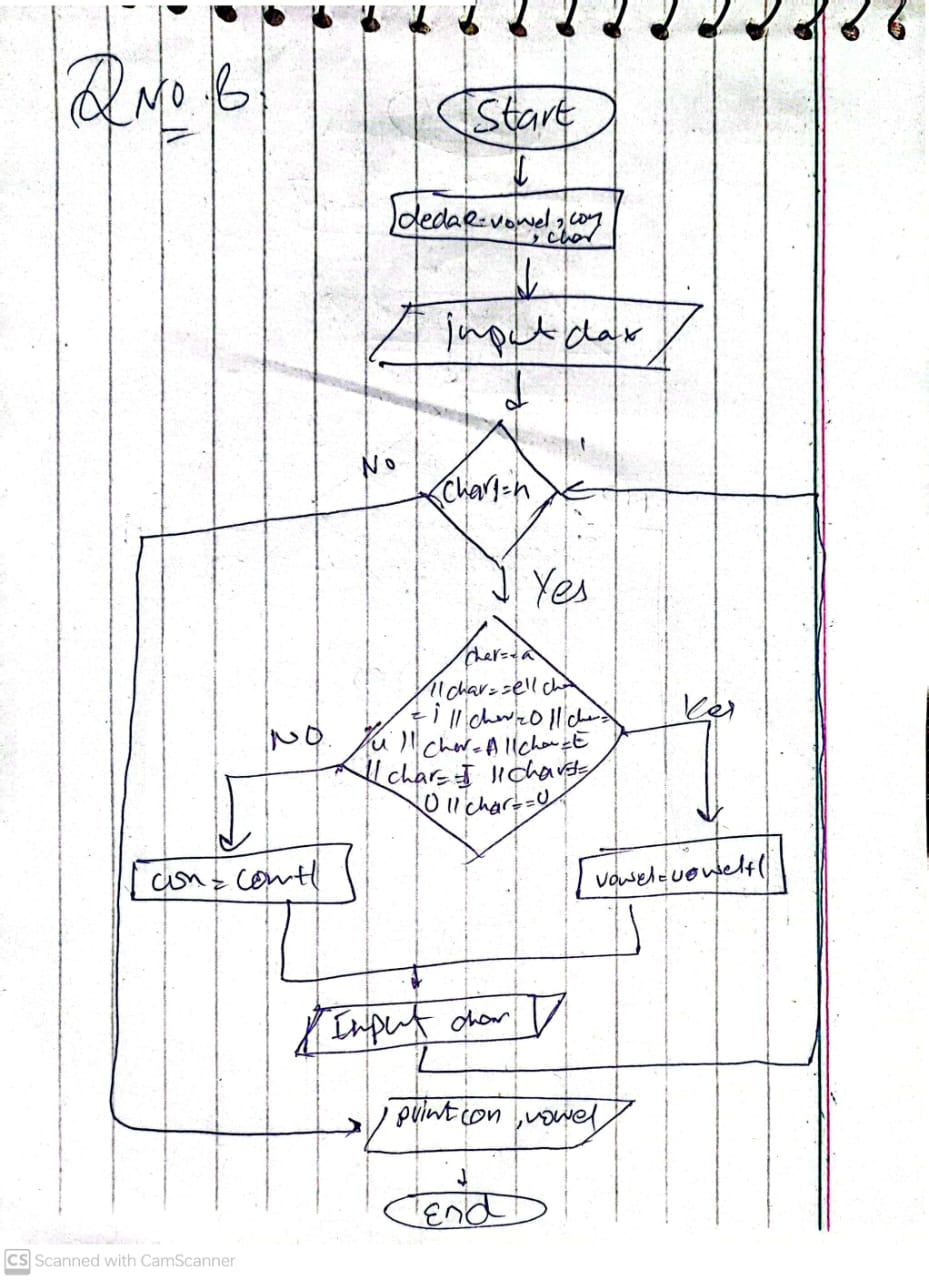 Q No. 6.
Start
declare vowel, con
, char
input char
char!=n
No
Yes
char==a
|| char==e || char
= i || char=O || char=
u || char=A || char=E
|| char==I || char==
O || char==U
NO
Yes
con = con+1
vowel=vowel+1
Input char
print con, vowel
End
CS Scanned with CamScanner